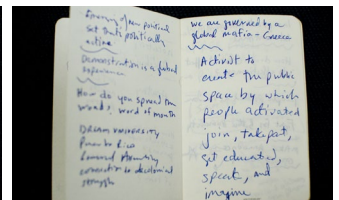 of new political
set that's politically
active
Demonstration is a
experience
How do you spread the
words, word of mouth
DREAM UNIVERSITY
Puerto Rico
General Assembly
connection to decolonial
struggle
we are governed by a
global mafia - Greece
Activist to
create the public
space by which
people activated
join, take part,
get educated,
speak, and
imagine